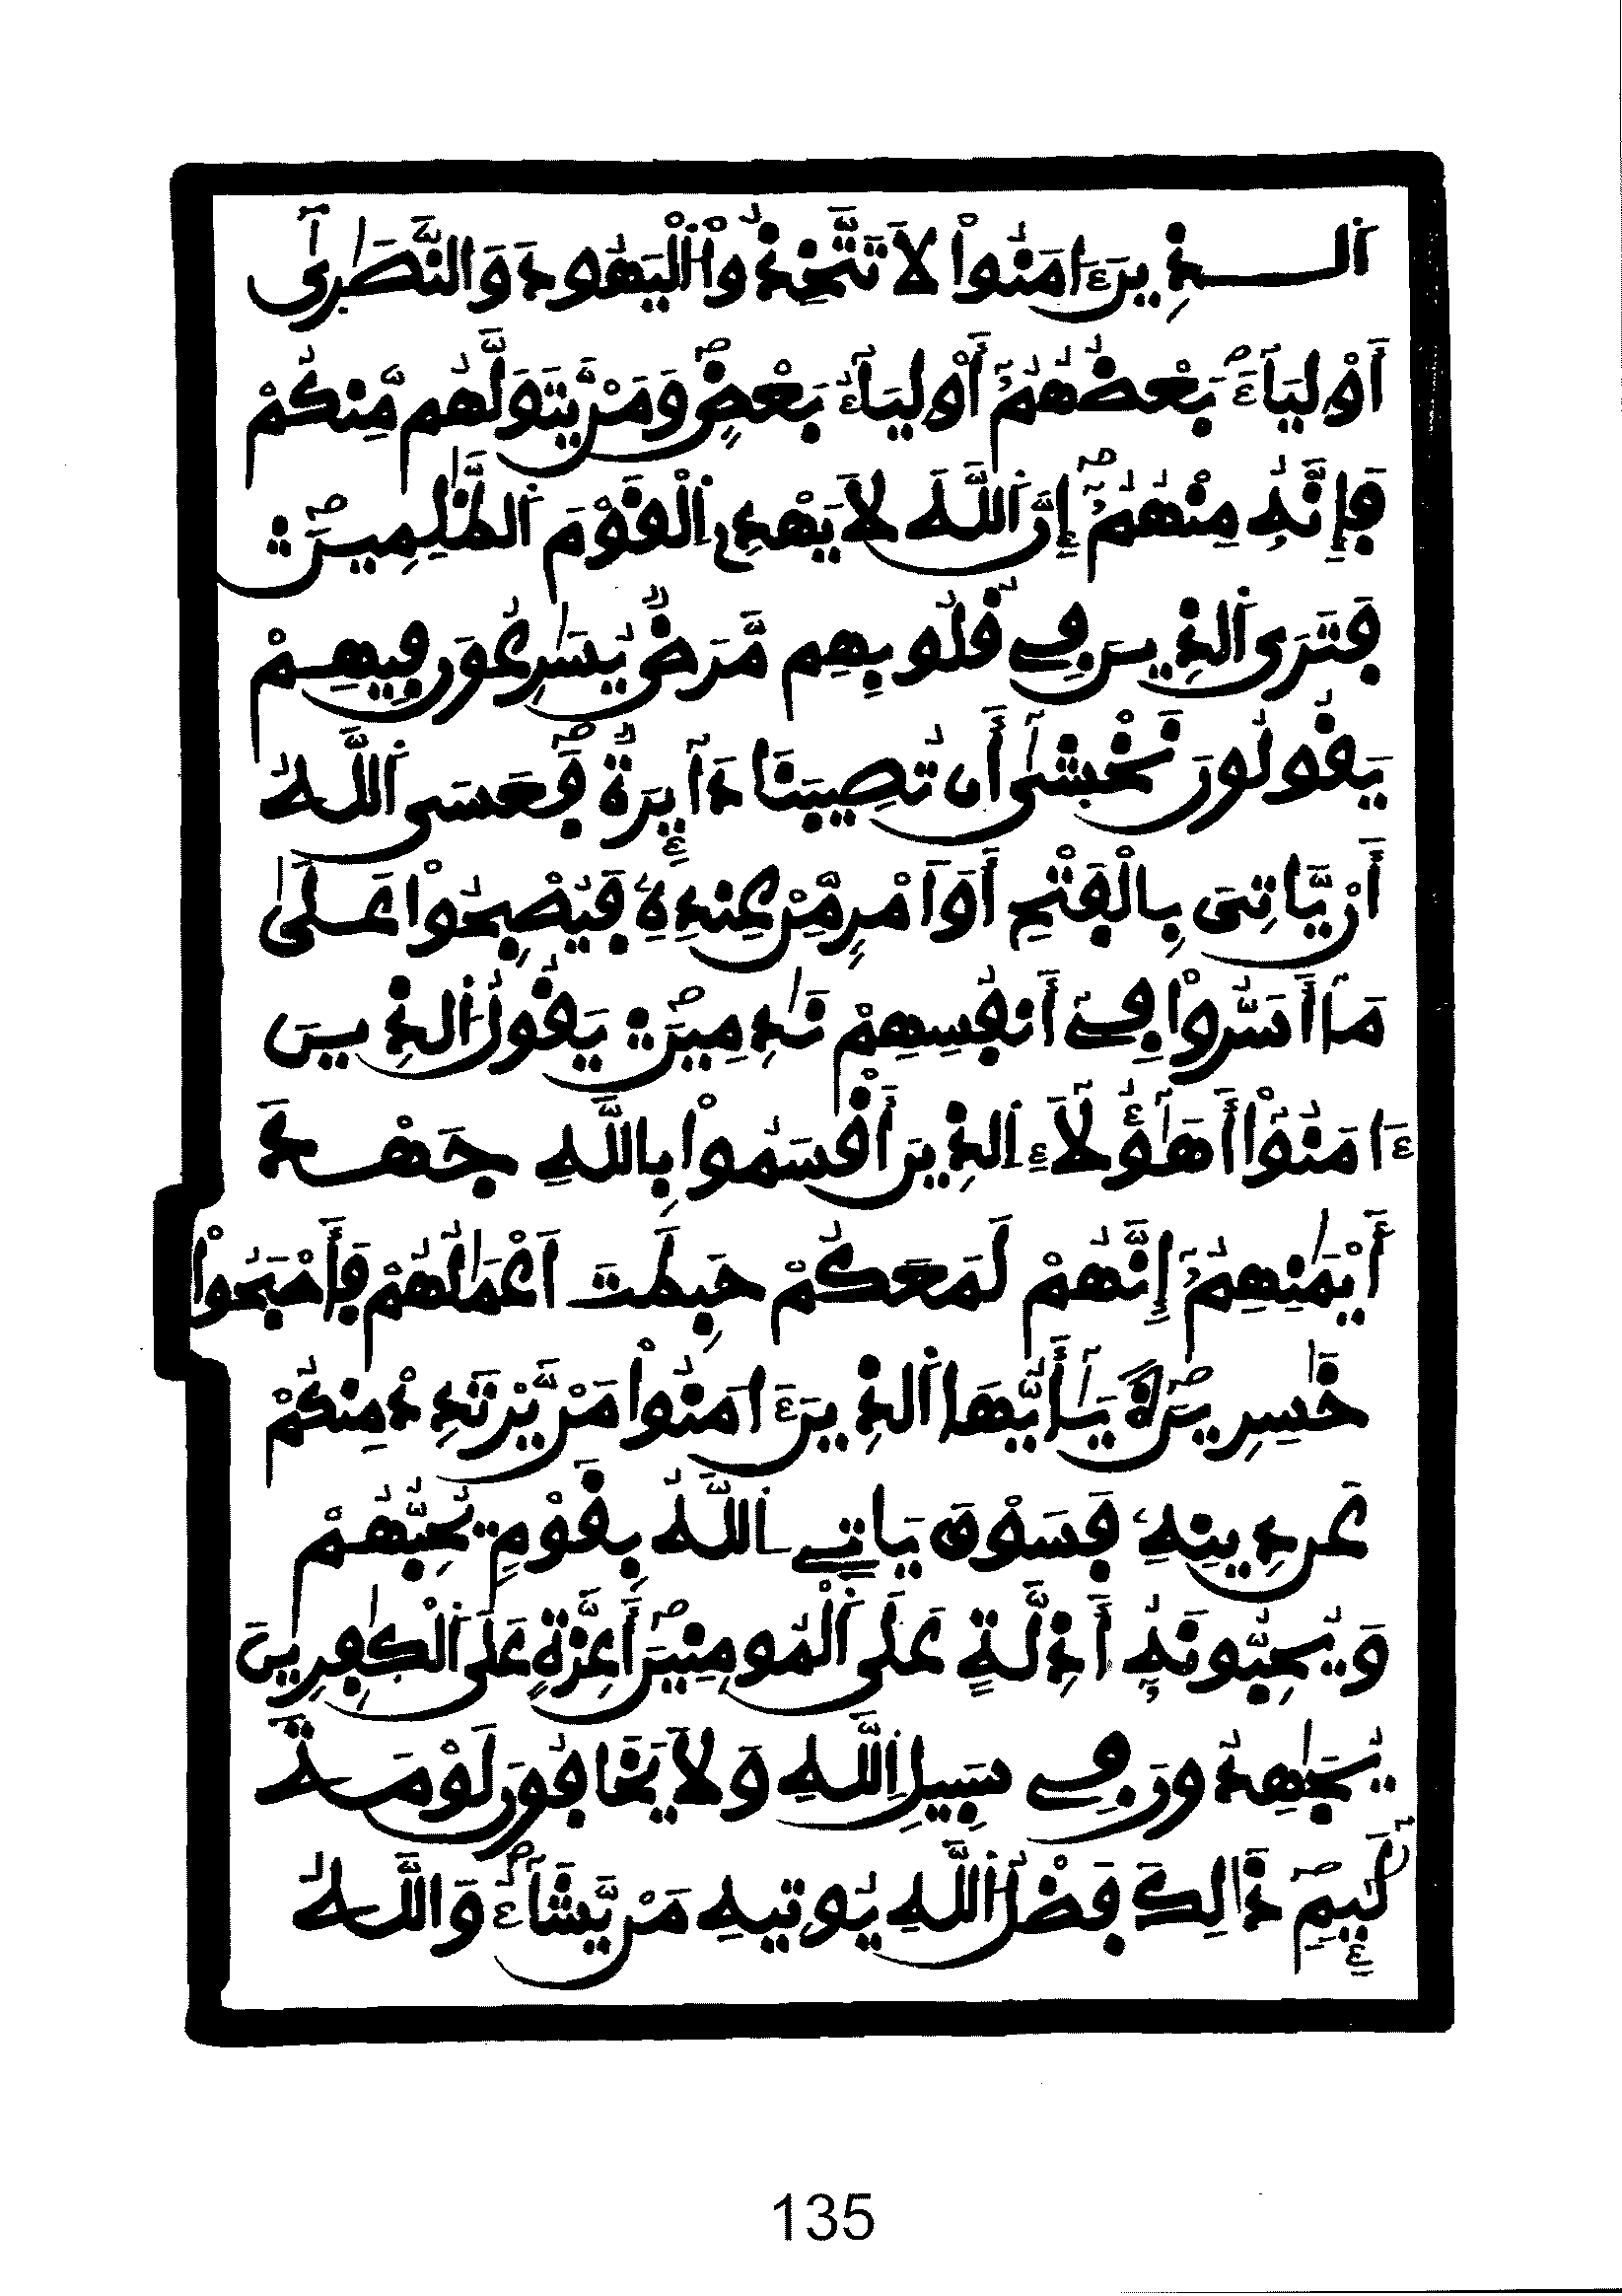 اَلذِينَ ءَامَنُواْ لَا تَتَّخِذُواْ اُلْيَهُودَ وَالنَّصَٰرَىٰٓ
أَوْلِيَآءَ بَعْضُهُمُۥٓ أَوْلِيَآءُ بَعْضٍ وَمَنْ يَّتَوَلَّهُم مِّنكُمْ
فَإِنَّهُۥ مِنْهُمُۥٓ إِنَّ اَللَّهَ لَا يَهْدِے اِلْقَوْمَ اَلظَّٰلِمِينَ
فَتَرَى اَلذِينَ فِے قُلُوبِهِم مَّرَضٌ يُسَٰرِعُونَ فِيهِمْ
يَقُولُونَ نَخْشَىٰٓ أَن تُصِيبَنَا دَآئِرَةٌ فَعَسَى اَللَّهُ
أَنْ يَّاتِىَ بِالْفَتْحِ أَوَ اَمْرٍ مِّنْ عِندِهِۦ فَيُصْبِحُواْ عَلَىٰ
مَآ أَسَرُّواْ فِےٓ أَنفُسِهِمْ نَٰدِمِينَ يَقُولُ اُلذِينَ
ءَامَنُوٓاْ أَهَٰٓؤُلَآءِ اِلذِينَ أَقْسَمُواْ بِاللَّهِ جَهْدَ
أَيْمَٰنِهِمُۥٓ إِنَّهُمْ لَمَعَكُمْ حَبِطَتَ اَعْمَٰلُهُمْ فَأَصْبَحُواْ
خَٰسِرِينَ يَٰٓأَيُّهَا اَلذِينَ ءَامَنُواْ مَنْ يَّرْتَدِدْ مِنكُمْ
عَن دِينِهِۦ فَسَوْفَ يَاتِے اِللَّهُ بِقَوْمٍ يُحِبُّهُمْ
وَيُحِبُّونَهُۥٓ أَذِلَّةٍ عَلَى اَلْمُومِنِينَ أَعِزَّةٍ عَلَى اَلْكَٰفِرِينَ
يُجَٰهِدُونَ فِے سَبِيلِ اِللَّهِ وَلَا يَخَافُونَ لَوْمَةَ
لَآئِمٍ ذَٰلِكَ فَضْلُ اُللَّهِ يُوتِيهِ مَنْ يَّشَآءُ وَاللَّهُ
135